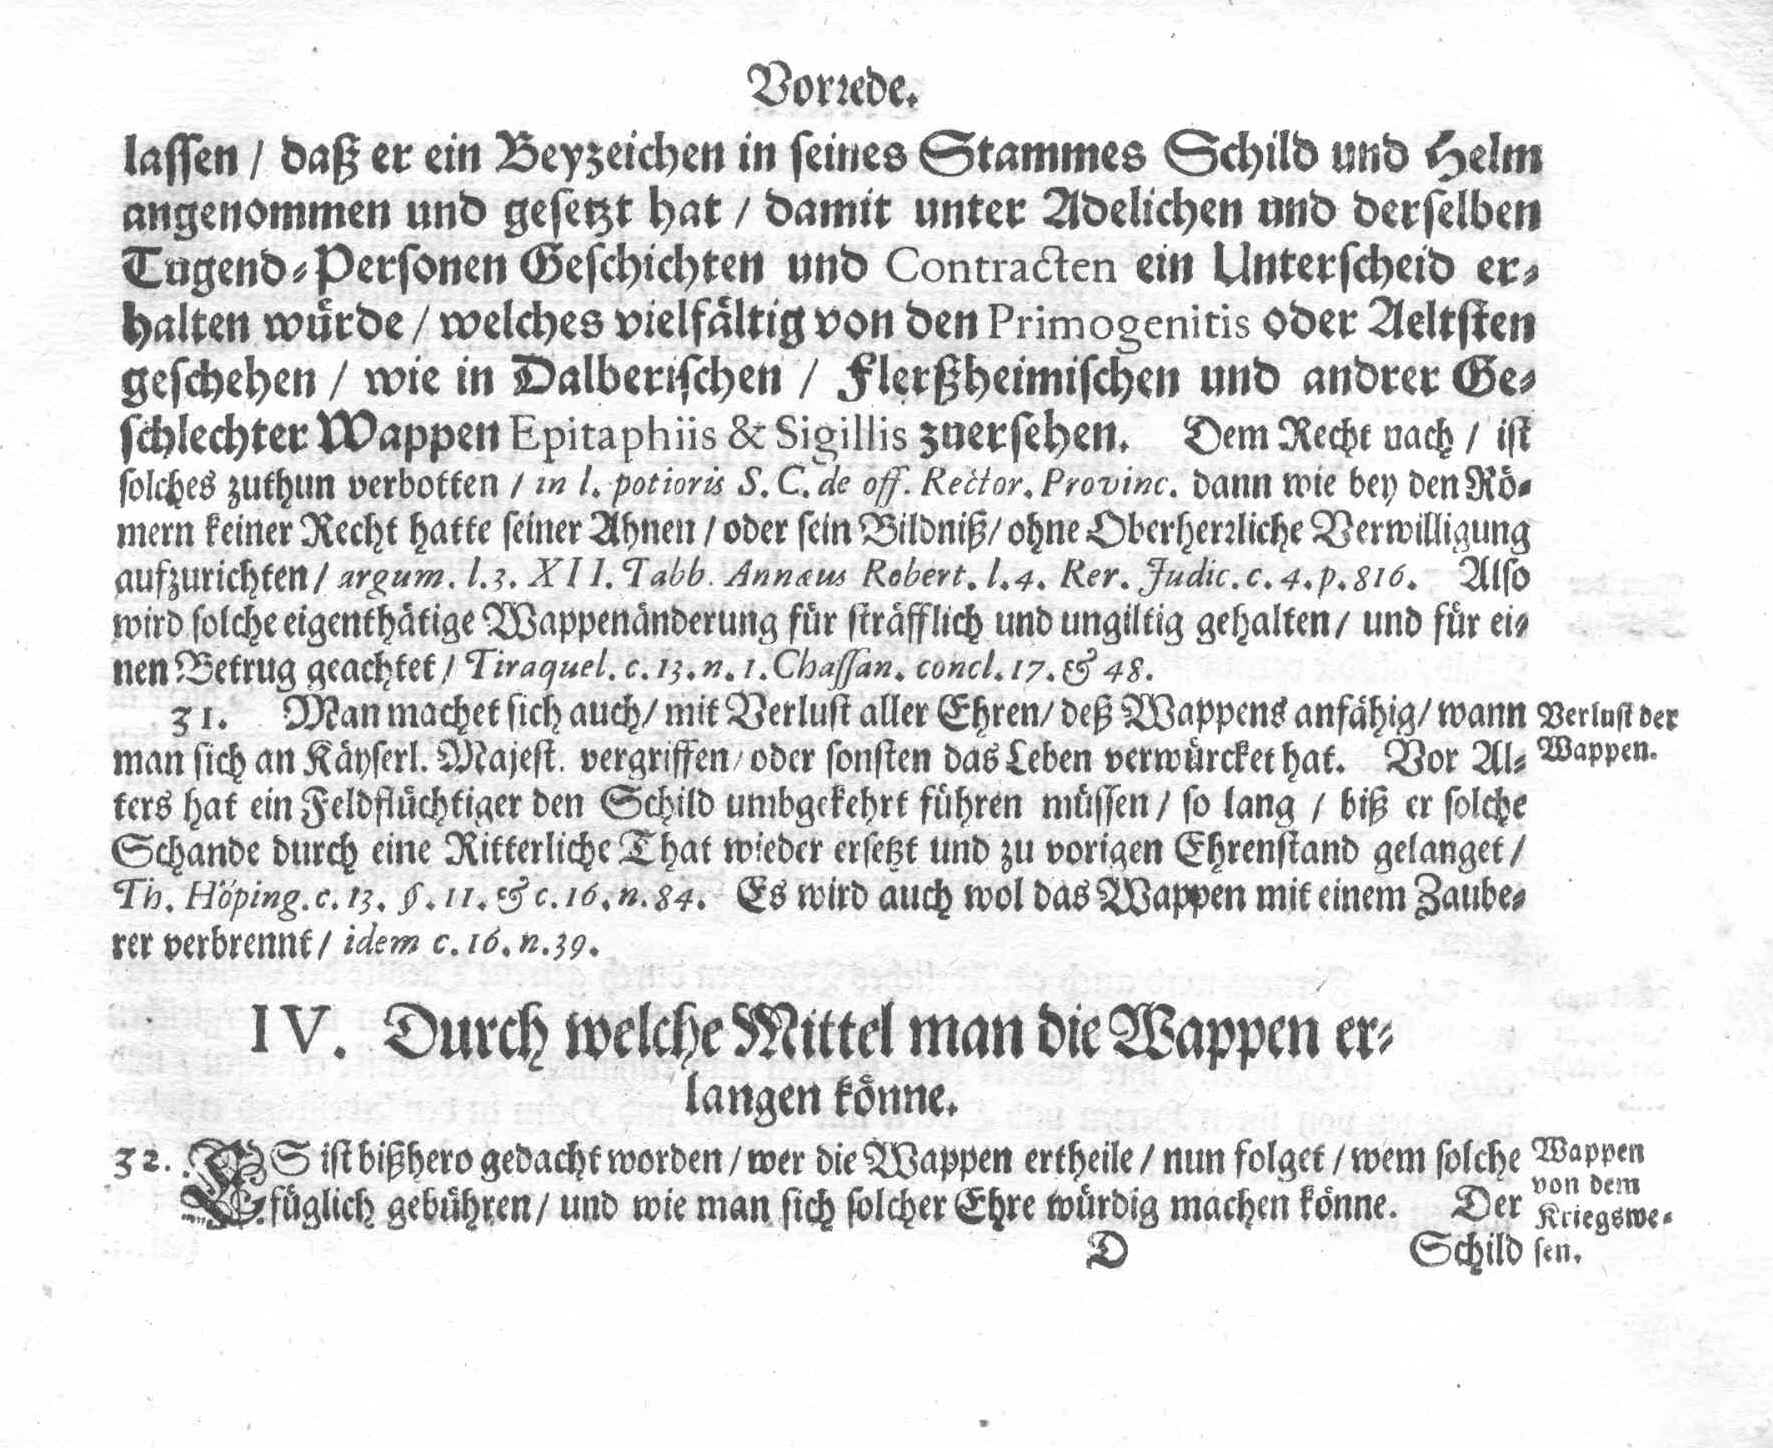 Vorrede.
lassen / daß er ein Beyzeichen in seines Stammes Schild und Helm
angenommen und gesetzt hat / damit unter Adelichen und derselben
Tugend-Personen Geschichten und Contracten ein Unterscheid er-
halten würde / welches vielfältig von den Primogenitis oder Aeltsten
geschehen / wie in Dalberischen / Flerßheimischen und andrer Ge-
schlechter Wappen Epitaphiis & Sigillis zuersehen. Dem Recht nach / ist
solches zuthun verbotten / in l. potioris S. C. de off. Rector. Provinc. dann wie bey den Rö-
mern keiner Recht hatte seiner Ahnen / oder sein Bildniß / ohne Oberherrliche Verwilligung
aufzurichten / argum. l. 3. XII. Tabb. Annæus Robert. l. 4. Rer. Judic. c. 4. p. 816. Also
wird solche eigenthätige Wappenänderung für sträfflich und ungiltig gehalten / und für ei-
nen Betrug geachtet / Tiraquel. c. 13. n. 1. Chassan. concl. 17. & 48.
31. Man machet sich auch / mit Verlust aller Ehren / deß Wappens anfähig / wann
man sich an Käyserl. Majest. vergriffen / oder sonsten das Leben verwürcket hat. Vor Al-
ters hat ein Feldflüchtiger den Schild umbgekehrt führen müssen / so lang / biß er solche
Schande durch eine Ritterliche That wieder ersetzt und zu vorigen Ehrenstand gelanget /
Th. Höping. c. 13. §. 11. & c. 16. n. 84. Es wird auch wol das Wappen mit einem Zaube-
rer verbrennt / idem c. 16. n. 39.
Verlust der
Wappen.
IV. Durch welche Mittel man die Wappen er-
langen könne.
32. ES ist bißhero gedacht worden / wer die Wappen ertheile / nun folget / wem solche
füglich gebühren / und wie man sich solcher Ehre würdig machen könne. Der
Wappen
von dem
Kriegswe-
sen.
D Schild